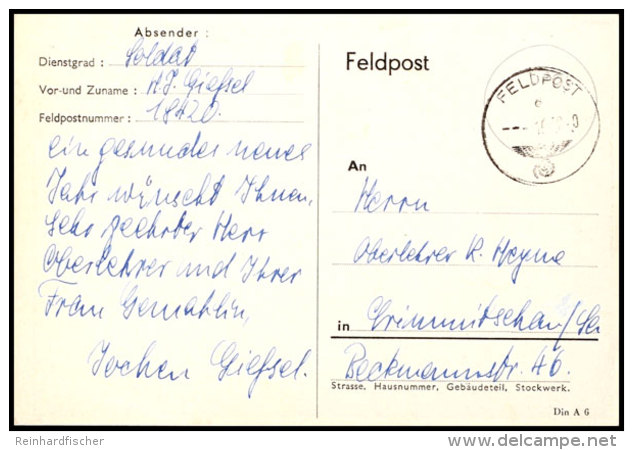 Absender :
Dienstgrad : Soldat
Vor-und Zuname : H.J. Gießel
Feldpostnummer : 18420.
ein gesundes neues
Jahr wünscht Ihnen,
sehr geehrter Herr
Oberlehrer und Ihrer
Frau Gemahlin,
Jochen Gießel.
Feldpost
FELDPOST
c
An
Herrn
Oberlehrer K. Heyne
in Crimmitschau/Sa
Beckmannstr. 46.
Strasse, Hausnummer, Gebäudeteil, Stockwerk.
Din A 6
Reinhardfischer
delcampe.net